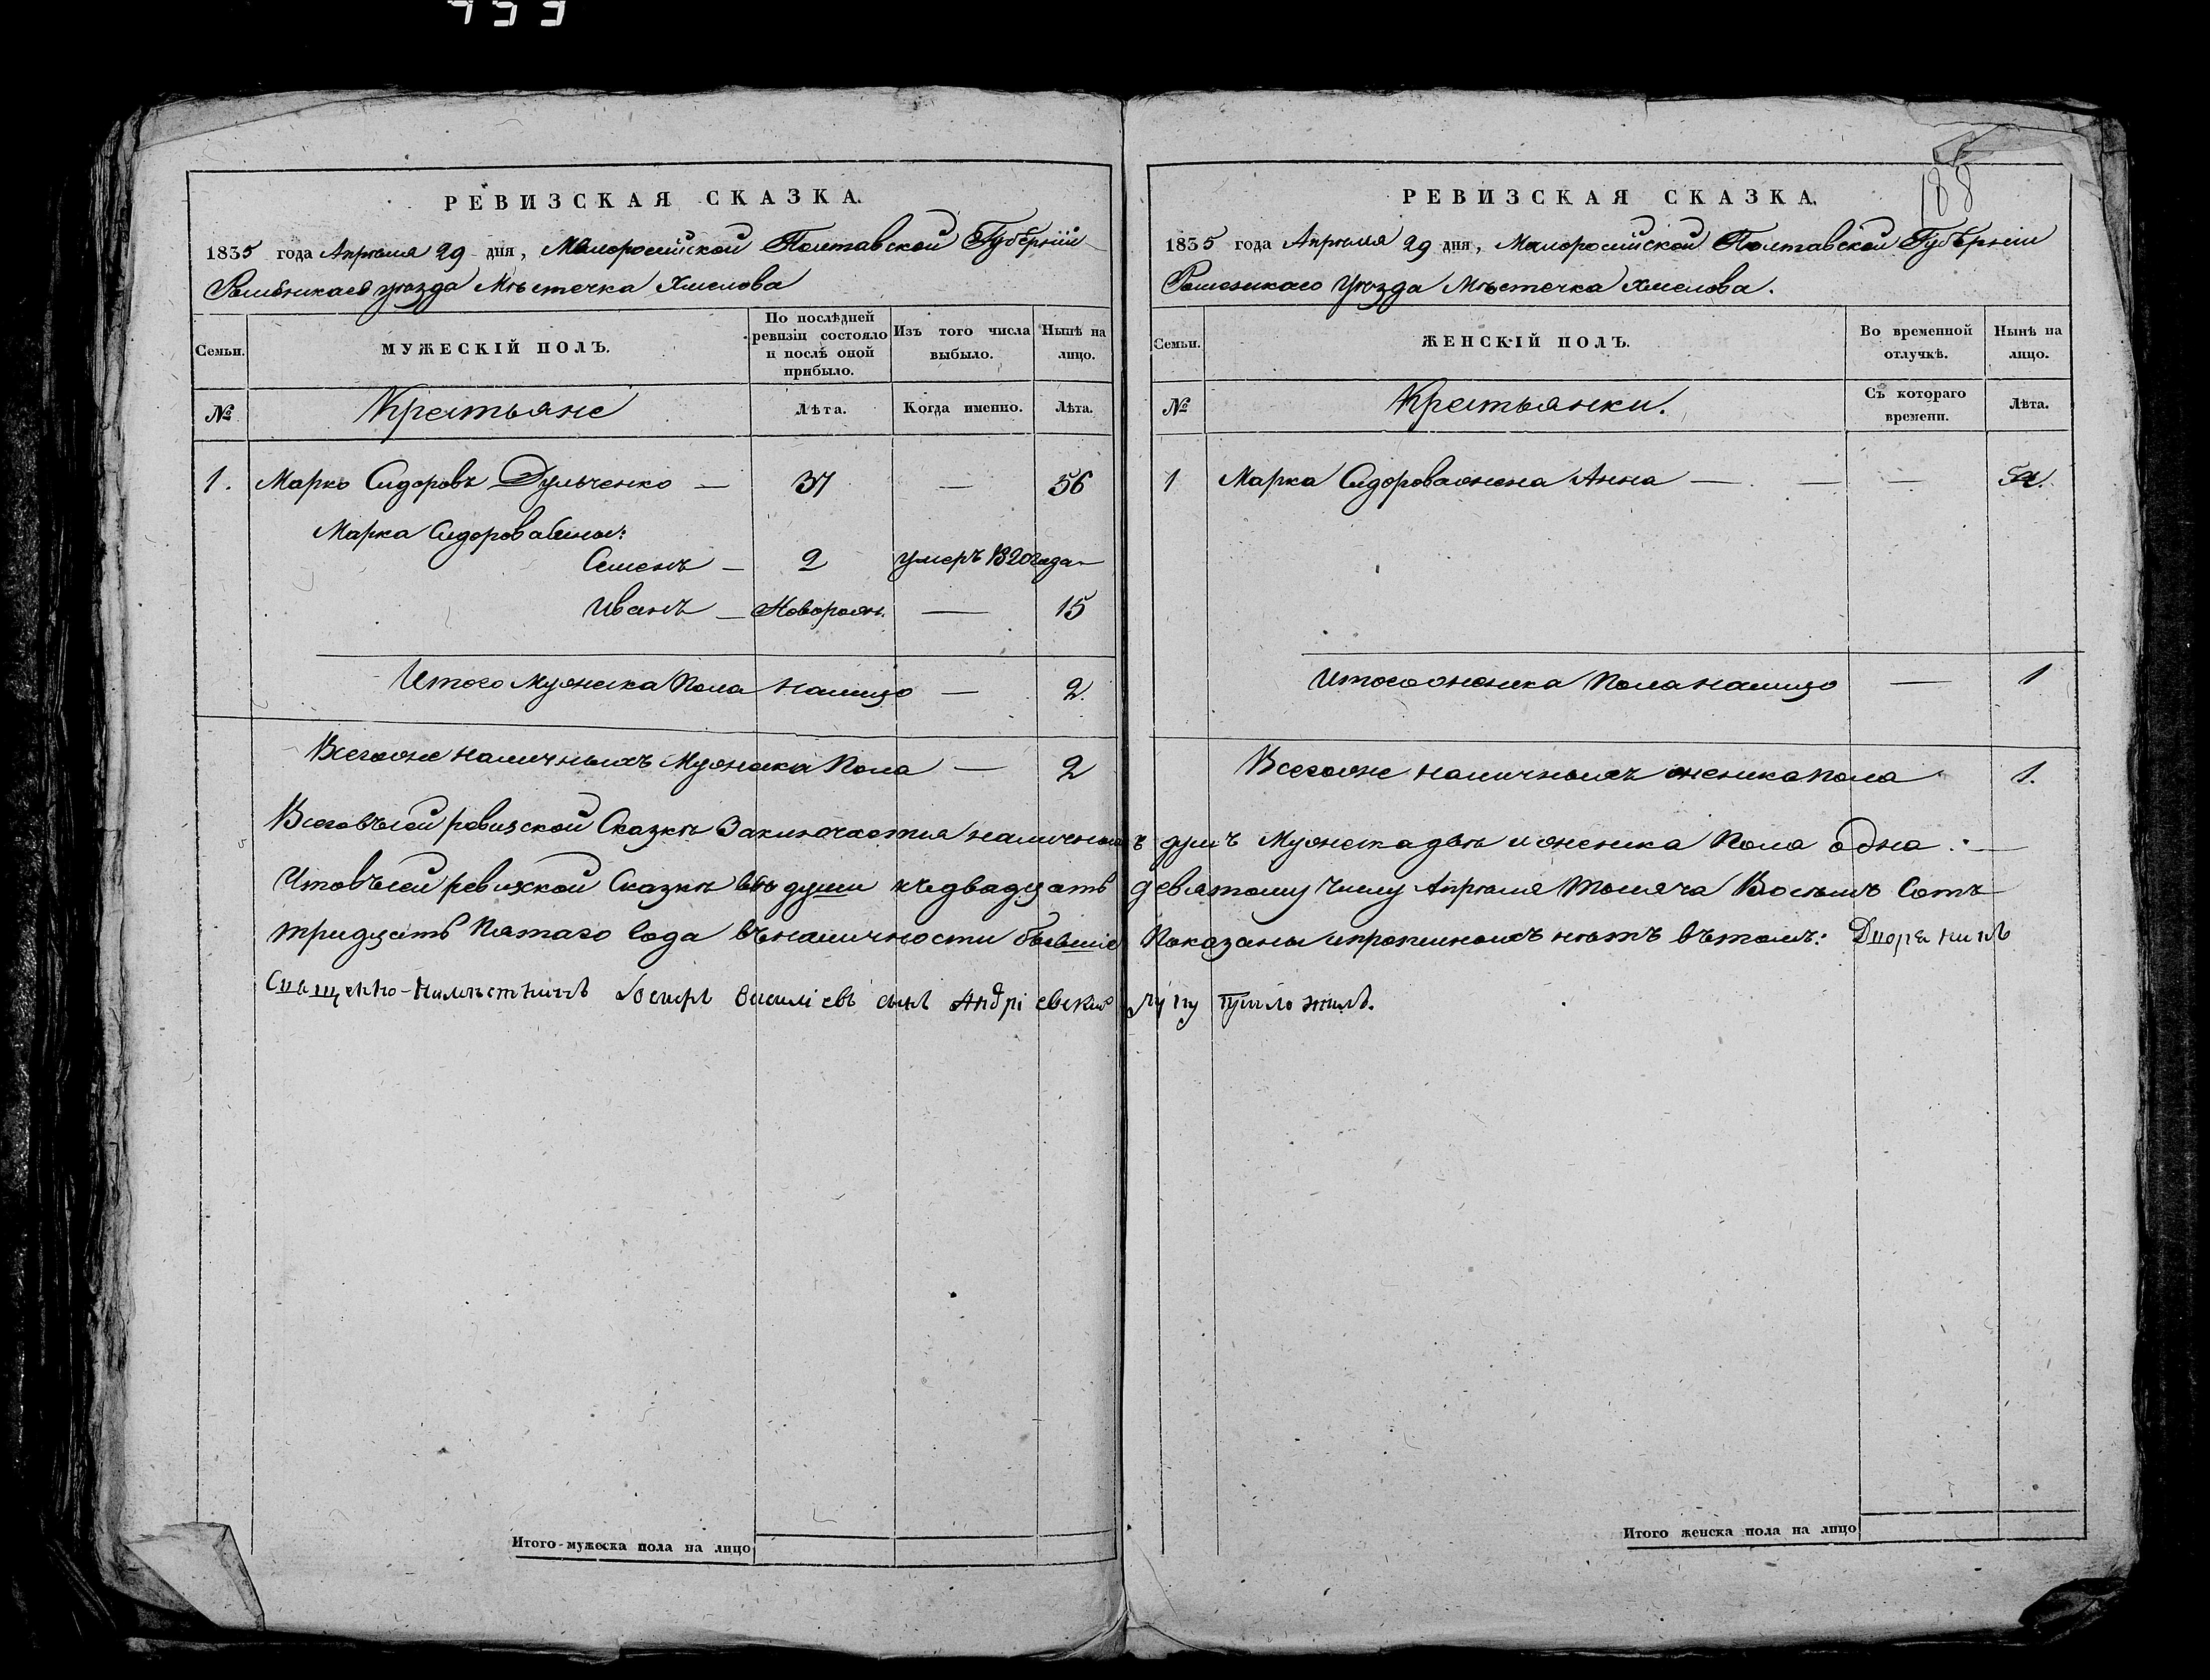 РЕВИЗСКАЯ СКАЗКА.
1835 года Апрѣля 29 дня, Малоросийской Полтавской Губерніи
Роменскаго уѣзда Мѣстечка Хмелова
Семьи.
МУЖЕСКІЙ ПОЛЪ.
По послѣдней ревизіи состояло и послѣ оной прибыло.
Изъ того числа выбыло.
Нынѣ на лицо.
№
Крестьяне
Лѣта.
Когда именно.
Лѣта.
1. Марко Сидоровъ Дульченко — 37 — 56
Марка Сидорова сыны:
Семенъ — 2 умеръ 1820 года —
Иванъ — Новорожд. — 15
Итого Мужеска Пола налицо — 2.
Всегоже наличныхъ Мужеска Пола — 2
РЕВИЗСКАЯ СКАЗКА.
188
1835 года Апрѣля 29 дня, Малоросийской Полтавской Губерніи
Роменскаго уѣзда Мѣстечка Хмелова.
Семьи.
ЖЕНСКІЙ ПОЛЪ.
Во временной отлучкѣ.
Нынѣ на лицо.
№
Крестьянки.
Съ котораго времени.
Лѣта.
1 Марка Сидорова жена Анна — — —
Итого женска Пола налицо — 1
Всегоже наличныхъ женска пола 1.
Всего въ сей ревизской Сказкѣ Заключается наличныхъ душъ Мужеска двѣ и женска Пола одна. —
Что въ сей ревизкой Сказкѣ всѣ души къ двадцать девятому Числу Апрѣля Тысяча Восѣмъ Сотъ
тридцать Пятаго Года въ наличности бывшіе Показаны и прописныхъ нѣтъ въ томъ: Дворенинъ
Сіосипъ Василіевъ сынъ Андріевскій руку приложилъ.
Итого мужеска пола на лицо
Итого женска пола на лицо